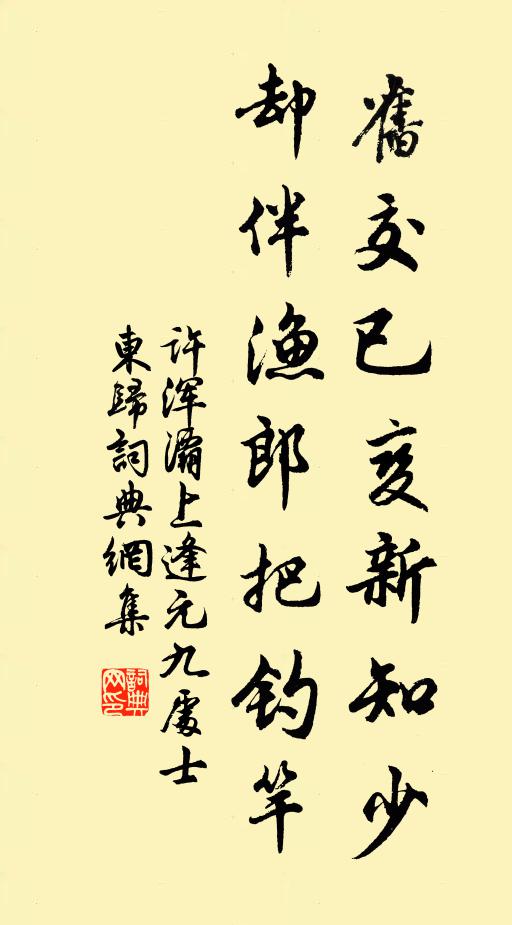 舊交已變新知少
却伴漁郎把釣竿
許渾灞上逢元九處士
東歸詞典網集
詞典
网印